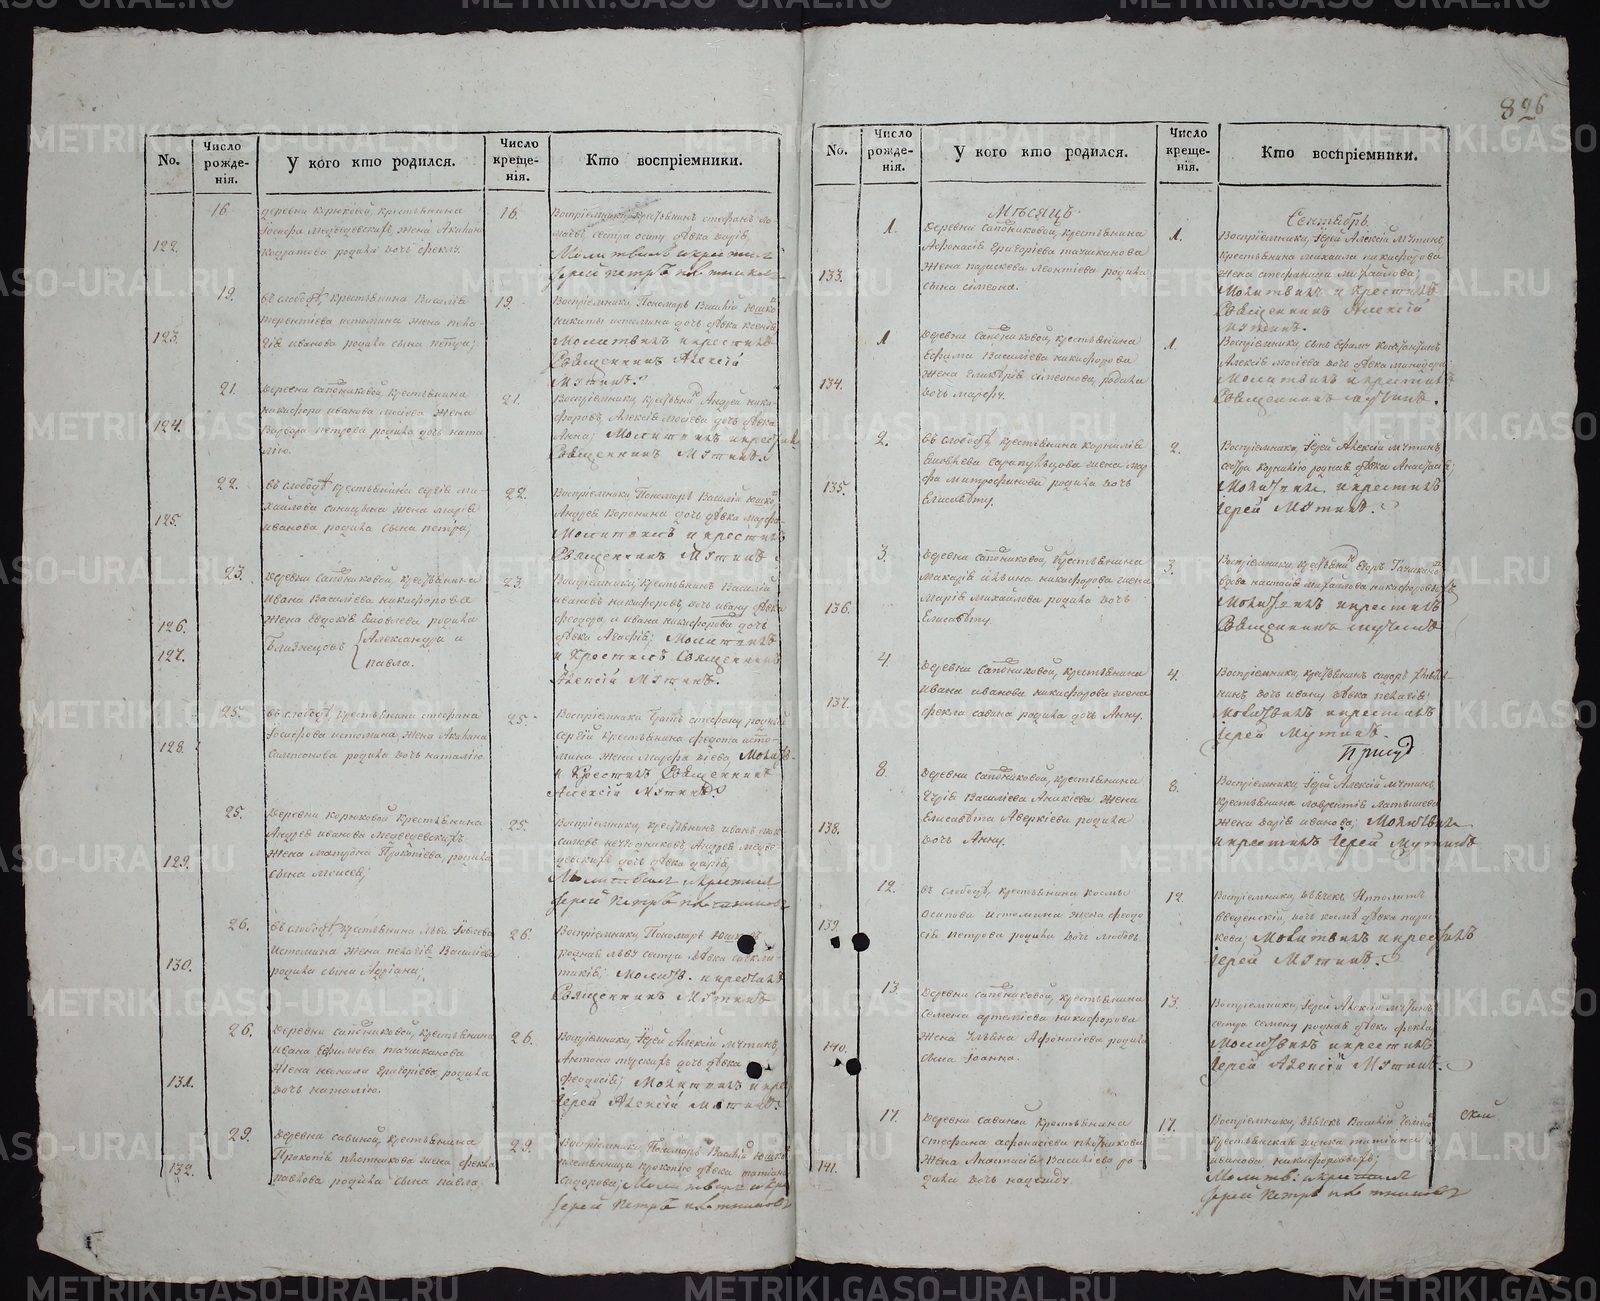 826
No.
Число рожде-нія.
У кого кто родился.
Число креще-нія.
Кто воспріемники.
122.
16
деревни Корюковой, крестьянина
Іосифа Медведевскихъ, жена Акилина
Кодратова родила дочь Феклу.
16.
Молитвилъ и крестилъ
Іерей Петръ Плотниковъ
123.
19.
въ слободѣ, крестьянина Василія
Терентіева Истомина жена Пела-
гія Иванова родила сына Петра;
19.
Воспріемники Пономарь Василій
Никиты Истомина дочь дѣвка Ксенія
Молитвилъ и крестилъ
Священникъ Алексій
Мутинъ.
124.
21.
деревни Сапожниковой, крестьянина
Никифора Иванова жена
Варвара Петрова родила дочь Ната
лію.
21.
дочь дѣвка
Анна; Молитвилъ и крестилъ
Священникъ Мутинъ.
125.
22.
въ слободѣ крестьянина Сергія Ми-
хайлова жена Марія
Иванова родила сына Петра;
22.
Воспріемники Пономарь Василій
Андрея Воронина дочь дѣвка Марфа
Молитвилъ и крестилъ
Священникъ Мутинъ
126.
127.
23.
деревни Сапожниковой, крестьянина
Ивана Василіева Никифорова
жена Евдокія Яковлева родила
Близнецовъ Александра и
Павла.
23.
Воспріемники, крестьянинъ Василій
Ивановъ Никифоровъ, дочь Ивану дѣвка
Феодора и Ивана Никифорова дочь
дѣвка Агафія; Молитвилъ
и Крестилъ Священникъ
Алексій Мутинъ.
128.
25.
въ слободѣ, крестьянина Стефана
Іосифова Истомина, жена Акилина
Самсонова родила дочь Наталію
25.
Воспріемники братъ Стефану родный
Сергій крестьянина Федота Исто-
мина жена Марфа
и Крестилъ Священникъ
Алексій Мутинъ.
129.
25.
деревни Корюковой крестьянина
Андрея Иванова Медведевскихъ
жена Матрона Прокопіева, родила
сына Моисея;
25.
Воспріемники, крестьянинъ Иванъ
Андрея Медве
девскихъ дочь дѣвка Дарія,
Молитвилъ и крестилъ
Іерей Петръ Плотниковъ
130.
26.
въ слободѣ, крестьянина Льва
Истомина жена Пелагія Василіева
родила сына Адріана;
26.
Воспріемники, Пономарь
родная Льву сестра дѣвка
Молитв. и крестилъ
Священникъ Мутинъ
131.
26.
деревни Сапожниковой, крестьянина
Ивана Ефимова Тачиканова
жена Неонила Григоріева, родила
дочь Наталію.
26.
Воспріемники, Іерей Алексій Мутинъ,
дочь дѣвка
Феодосія; Молитвилъ и крес
Іерей Алексій Мутинъ.
132.
29.
деревни Савиной, крестьянина
Прокопія Плотникова жена Фекла
Павлова родила сына Павла
29.
Воспріемники, Пономарь Василій
племянница Прокопію дѣвка Татіана
Сидорова; Молитвилъ и кре
Іерей Петръ Плотниковъ
No.
Число рожде-нія.
У кого кто родился.
Число креще-нія.
Кто воспріемники.
Мѣсяцъ
Сентябрь
133.
1.
деревни Сапожниковой, крестьянина
Афонасія Григоріева Тачиканова
жена Параскева Леонтіева родила
сына Симеона.
1.
Воспріемники, Іерей Алексій Мутинъ,
крестьянина Михаила Никифорова
жена Стефанида Михайлова;
Молитвилъ и крестилъ
Священникъ Алексій
Мутинъ.
134.
1
деревни Сапожниковой, крестьянина
Ефима Василіева Никифорова
жена Гликерія Симеонова, родила
дочь Марфу.
1.
Молитвилъ и крестилъ
Священникъ Мутинъ.
135.
2.
въ слободѣ, крестьянина Корнилія
Яковлева Сарапульцова жена Мар
фа Митрофанова родила дочь
Елисавету.
2.
Воспріемники, Іерей Алексій Мутинъ,
сестра Корнилію родная дѣвка Анастасія;
Молитвилъ и крестилъ
Іерей Мутинъ.
136.
3.
деревни Сапожниковой, крестьянина
Макарія Ильина Никифорова жена
Марія Михайлова родила дочь
Елисавету.
3.
вдова Настасія Михайлова
Молитвилъ и крестилъ
Священникъ Мутинъ
137.
4.
деревни Сапожниковой крестьянина
Ивана Иванова Никифорова жена
Фекла Савина родила дочь Анну.
4.
дочь Ивану дѣвка Пелагія
Молитвилъ и крестилъ
Іерей Мутинъ
138.
8.
деревни Сапожниковой, крестьянина
Гурія Василіева Аникіева жена
Елисавета Аверкіева родила
дочь Анну.
8.
Воспріемники, Іерей Алексій Мутинъ,
крестьянина Лаврентія Латышева
жена Дарія Иванова; Молитвилъ
и крестилъ Іерей Мутинъ
139.
12.
въ слободѣ, крестьянина Космы
Осипова Истомина жена Феодо
сія Петрова родила дочь Любовь
12.
Воспріемники, дьячекъ Ипполитъ
Введенскій, дочь Космы дѣвка Парас
кева; Молитвилъ и крестилъ
Іерей Мутинъ.
140.
13.
деревни Сапожниковой, крестьянина
Семена Артеміева Никифорова
жена Ульяна Афонасіева родила
сына Іоанна.
13.
Воспріемники, Іерей Алексій Мутинъ,
сестра Семену родная дѣвка Фекла,
Молитвилъ и крестилъ
Іерей Алексій Мутинъ.
141.
17.
деревни Савиной крестьянина
Стефана Афонасіева Плотникова
жена Анастасія Василіева ро
дила дочь Надежду.
17.
Воспріемники, дьячекъ Василій
крестьянская женка Татіана
Иванова Никифоровыхъ;
Молитв: и крестилъ
Іерей Петръ Плотниковъ
METRIKI.GASO-URAL.RU